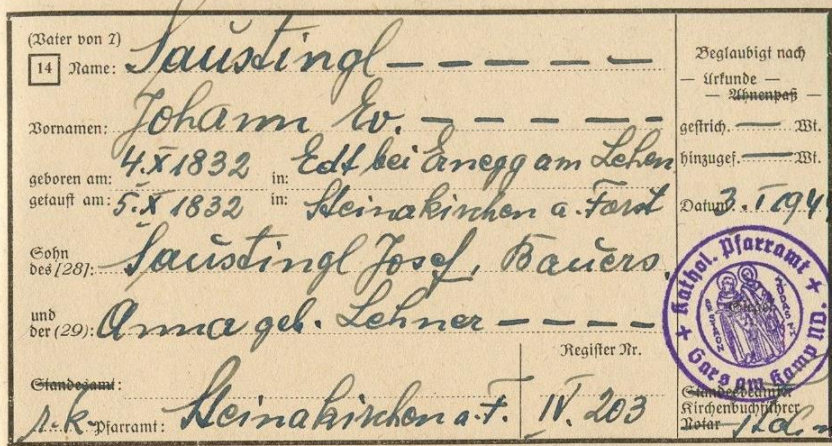 (Vater von 7)
14 Name: Saustingl — — — — —
Vornamen: Johann Ev. — — — — —
geboren am: 4.X 1832 in: Edt bei Ernegg am Lehen
getauft am: 5.X 1832 in: Steinakirchen a. Forst
Sohn
des [28]: Saustingl Josef, Bauers,
und
der (29): Anna geb. Lehner — — — —
Standesamt:
r.k. Pfarramt: Steinakirchen a. F.
Register Nr.
IV. 203
Beglaubigt nach
— Urkunde —
— Ahnenpaß —
gestrich. — Wt.
hinzugef. — Wt.
Datum 3. I 194
+ Kathol. Pfarramt +
Gars am Kamp ND.
Standesbeamter
Kirchenbuchführer
Notar